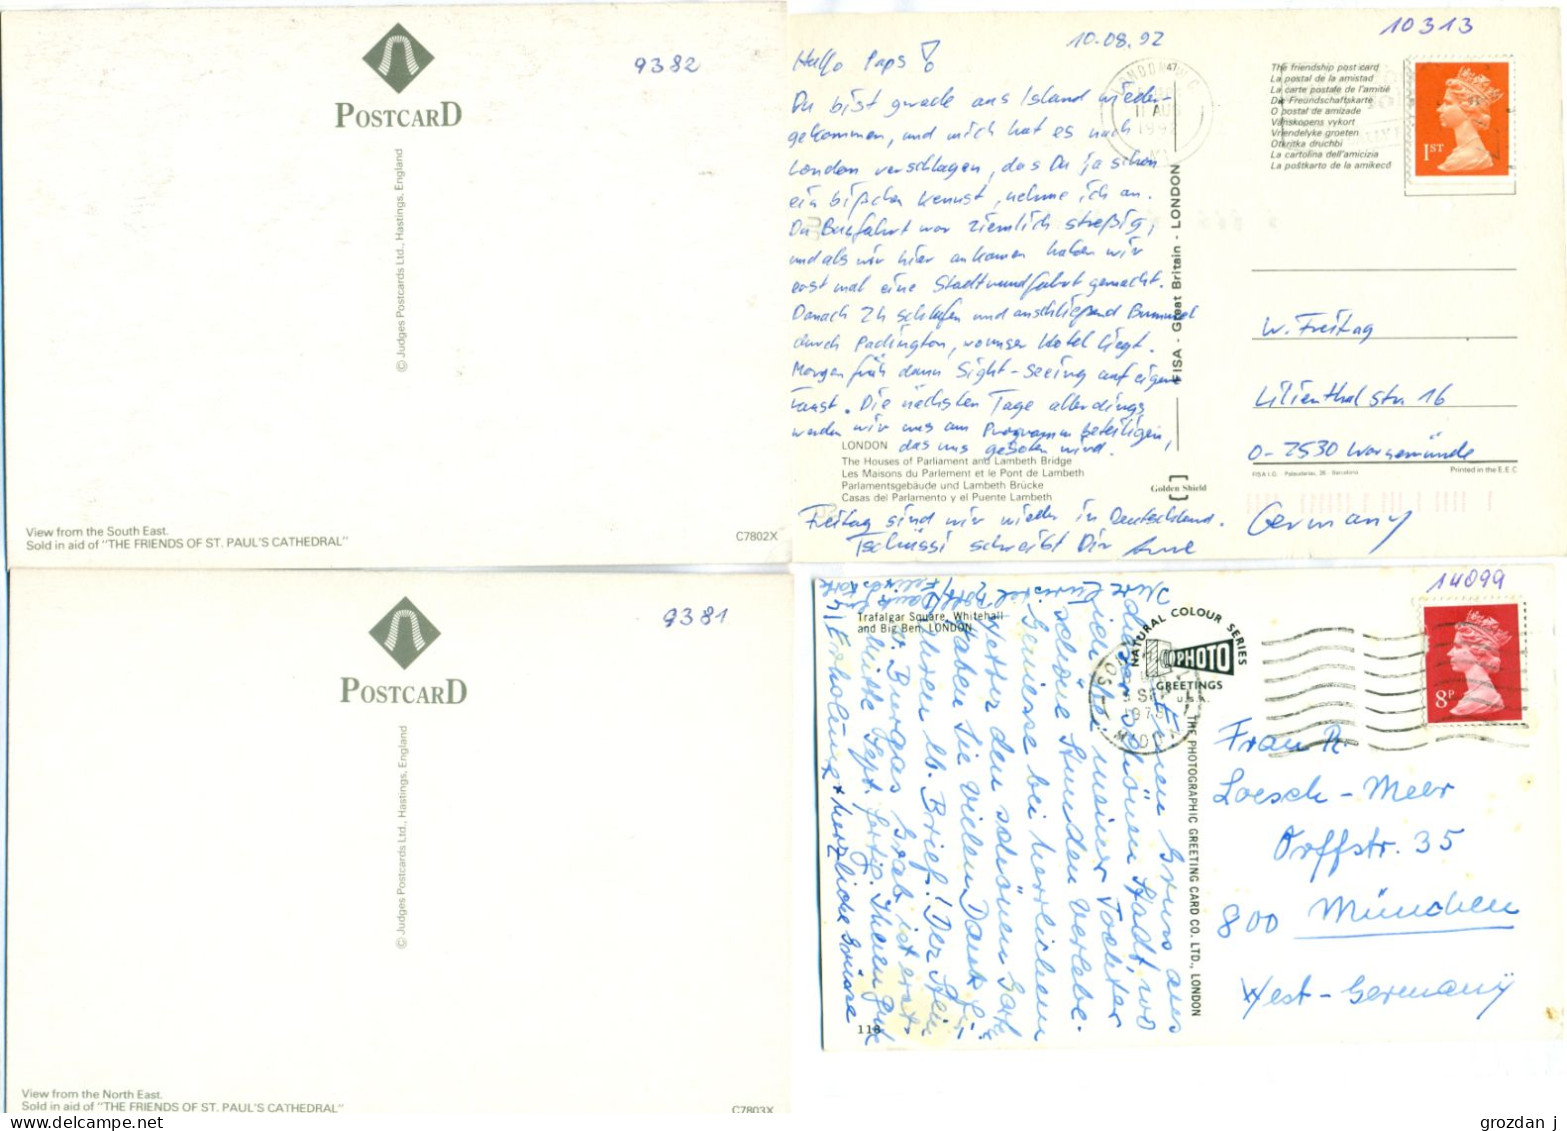 9382
POSTCARD
© Judges Postcards Ltd., Hastings, England
View from the South East.
Sold in aid of "THE FRIENDS OF ST. PAUL'S CATHEDRAL"
C7802X
10.08.92
10313
Hallo Paps!
Du bist gerade aus Island wieder-
gekommen, und mich hat es nach
London verschlagen, das Du ja schon
ein bißchen kennst, nehme ich an.
Die Busfahrt war ziemlich streßig,
und als wir hier ankamen haben wir
erst mal eine Stadtrundfahrt gemacht.
Danach 2h schlafen und anschließend Bummel
durch Padington, wo unser Hotel liegt.
Morgen früh dann Sight-Seeing auf eigene
Faust. Die nächsten Tage allerdings
werden wir uns am Programm beteiligen,
das uns geboten wird.
Freitag sind wir wieder in Deutschland.
Tschüssi schreibt Dir
LONDON
The Houses of Parliament and Lambeth Bridge
Les Maisons du Parlement et le Pont de Lambeth
Parlamentsgebäude und Lambeth Brücke
Casas del Parlamento y el Puente Lambeth
FISA - Great Britain - LONDON
Golden Shield
LONDON W.C.
11 AUG
1992
The friendship post card
La postal de la amistad
La carte postale de l'amitié
Die Freundschaftskarte
O postal de amizade
Vänskopens vykort
Vriendelyke groeten
Otkritka druchbi
La cartolina dell'amicizia
La poštkarto de la amikecd
1ST
W. Freitag
Lilienthalstr. 16
O-2530 Warnemünde
FISA I.G. Palaudarias, 26. Barcelona
Printed in the E.E.C
Germany
9381
POSTCARD
© Judges Postcards Ltd., Hastings, England
View from the North East.
Sold in aid of "THE FRIENDS OF ST. PAUL'S CATHEDRAL"
C7803X
14099
Trafalgar Square, Whitehall
and Big Ben, LONDON
NATURAL COLOUR SERIES
PHOTO
GREETINGS
THE PHOTOGRAPHIC GREETING CARD CO. LTD., LONDON
118
8P
einen Gruss aus
dieser schönen Stadt, wo
ich bei meiner Tochter
schöne Stunden verlebe.
Geniesse bei herrlichem
Wetter den schönen
Haben Sie vielen Dank für
Ihren lb. Brief! Der Stein
v. Burgas Grab ist erst
Mitte Sept. fertig. Ihnen gute
Erholung + herzliche Grüsse
Frau R.
Loesch-Meer
Orffstr. 35
800 München
West-Germany
grozdan j